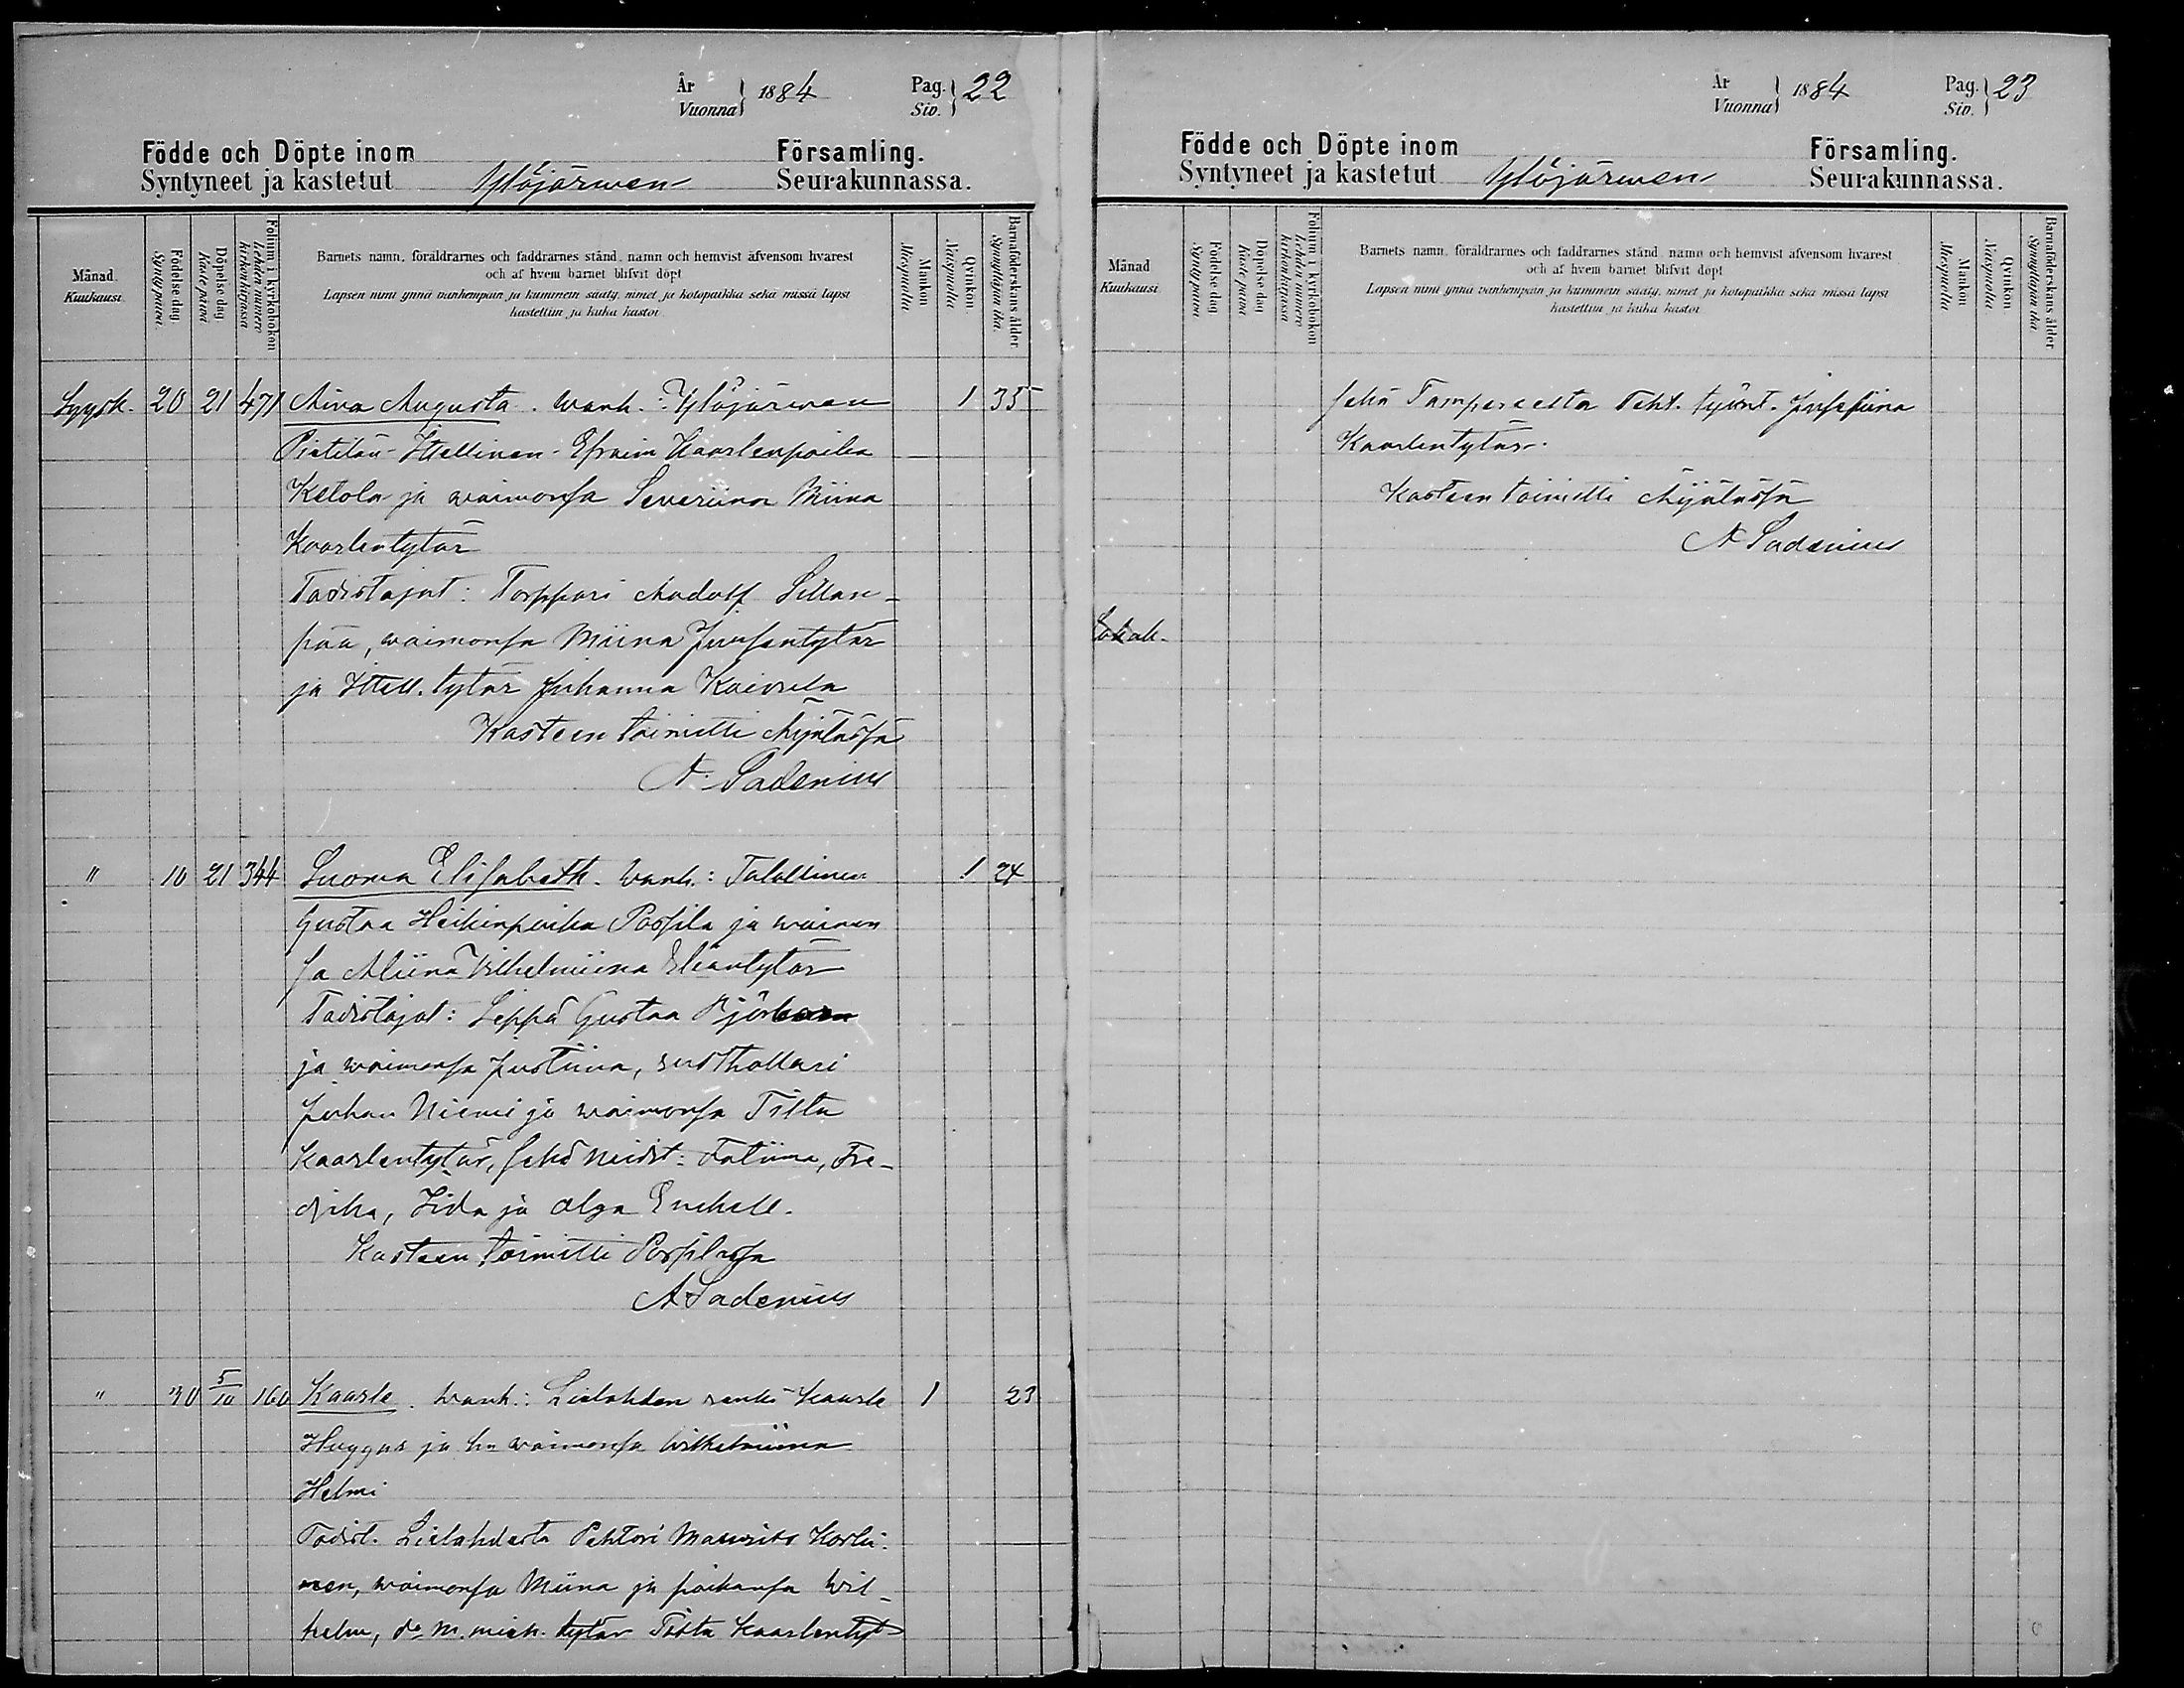 År
Vuonna } 1884 Pag.
Siv. } 22
Födde och Döpte inom Församling.
Syntyneet ja kastetut Ylöjärwen Seurakunnassa.
Månad.
Kuukausi.
Födelse dag.
Synty päivä.
Döpelse dag.
Kaste päivä
Folium i kyrkoboken
Lehden numero
kirkonkirjassa
Barnets namn, föräldrarnes och faddrarnes stånd, namn och hemvist äfvensom hvarest
och af hvem barnet blifvit döpt
Lapsen nimi ynnä vanhempain ja kummein sääty, nimet ja kotopaikka sekä missä lapsi
kastettiin ja kuka kastoi.
Mankön
Miespuolta
Qvinkön.
Vaispuolta
Barnaföderskans ålder
Synnyttäjän ikä
Syysk. 20 21 471 Aina Augusta. Wanh.: Ylöjärwen 1 35
Pietilän Itellinen Efraim Kaarlenpoika
Ketola ja waimonsa Severiina Miina
Kaarlentytär
Todistajat: Torppari Aadolf Sillan-
pää, waimonsa Miina Juusentytär
ja Itell. tytär Juhanna Koivula
Kasteen toimitti Äijälässä
A. Sadenius
" 10 21 344 Suoma Elisabeth. Wanh.: Talollinen 1 24
Gustaa Heikinpoika Possila ja waimon
sa Aliina Wilhelmiina Eliantytär
Todistajat: Seppä Gustaa
ja waimonsa Justiina, rusthollari
Juhan Niemi ja waimonsa Tilta
Kaarlentytär, sekä neidst: Fatiima, Fre-
drika, Iida ja Olga Enckell.
Kasteen toimitti Possilassa
A Sadenius
" 30 5/10 160 Kaarle. Wanh.: Lielahden renki Kaarle 1 23
Huggas ja h:n waimonsa Wilhelmiina
Helmi
Todist. Lielahdesta Pehtori Maurits Korhi-
nen, waimonsa Miina ja poikansa Wil-
helm, d:o M. miek. tytär Tilta Kaarlentyt
År
Vuonna } 1884 Pag.
Siv. } 23
Födde och Döpte inom Församling.
Syntyneet ja kastetut Ylöjärwen Seurakunnassa.
Månad
Kuukausi
Födelse dag
Synty päivä
Döpelse dag
Kaste päivä
Folium i kyrkoboken
Lehden numero
kirkonkirjassa
Barnets namn, föräldrarnes och faddrarnes stånd, namn och hemvist äfvensom hvarest
och af hvem barnet blifvit döpt
Lapsen nimi ynnä vanhempain ja kummein sääty, nimet ja kotopaikka sekä missä lapsi
kastettiin ja kuka kastoi
Mankön
Miespuolta
Qvinkön
Vaispuolta
Barnaföderskans ålder
Synnyttäjän ikä
sekä Tampereelta Teht. työnt. Josefiina
Kaarlentytär.
Kasteen toimitti Äijälässä
A Sadenius
Lokak.